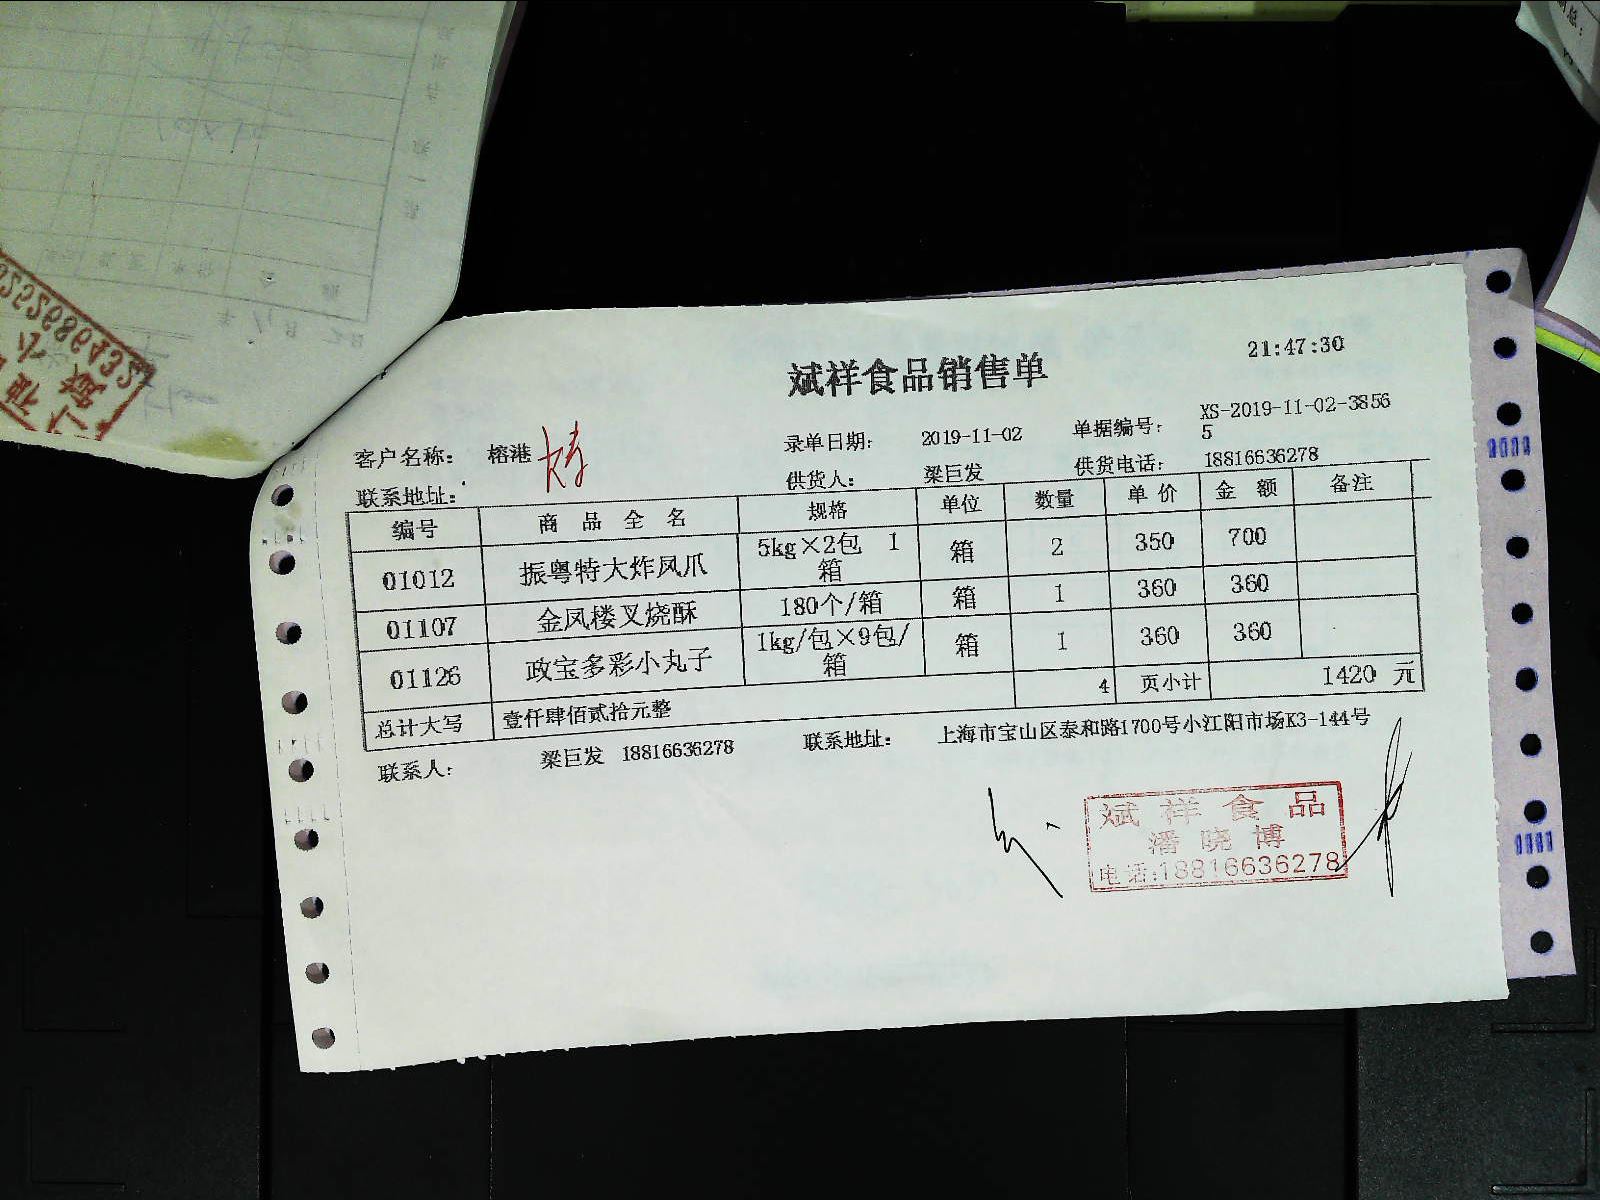 斌祥食品销售单
21:47:30
客户名称: 榕港
录单日期: 2019-11-02
单据编号: XS-2019-11-02-3856
5
联系地址:
供货人: 梁巨发
供货电话: 18816636278
编号 商品全名 规格 单位 数量 单价 金额 备注
01012 振粤特大炸凤爪 5kg×2包 1箱 箱 2 350 700
01107 金凤楼叉烧酥 180个/箱 箱 1 360 360
01126 政宝多彩小丸子 1kg/包×9包/箱 箱 1 360 360
总计大写 壹仟肆佰贰拾元整 4 页小计 1420 元
联系人: 梁巨发 18816636278 联系地址: 上海市宝山区泰和路1700号小江阳市场K3-144号
斌祥食品
潘晓博
电话:18816636278